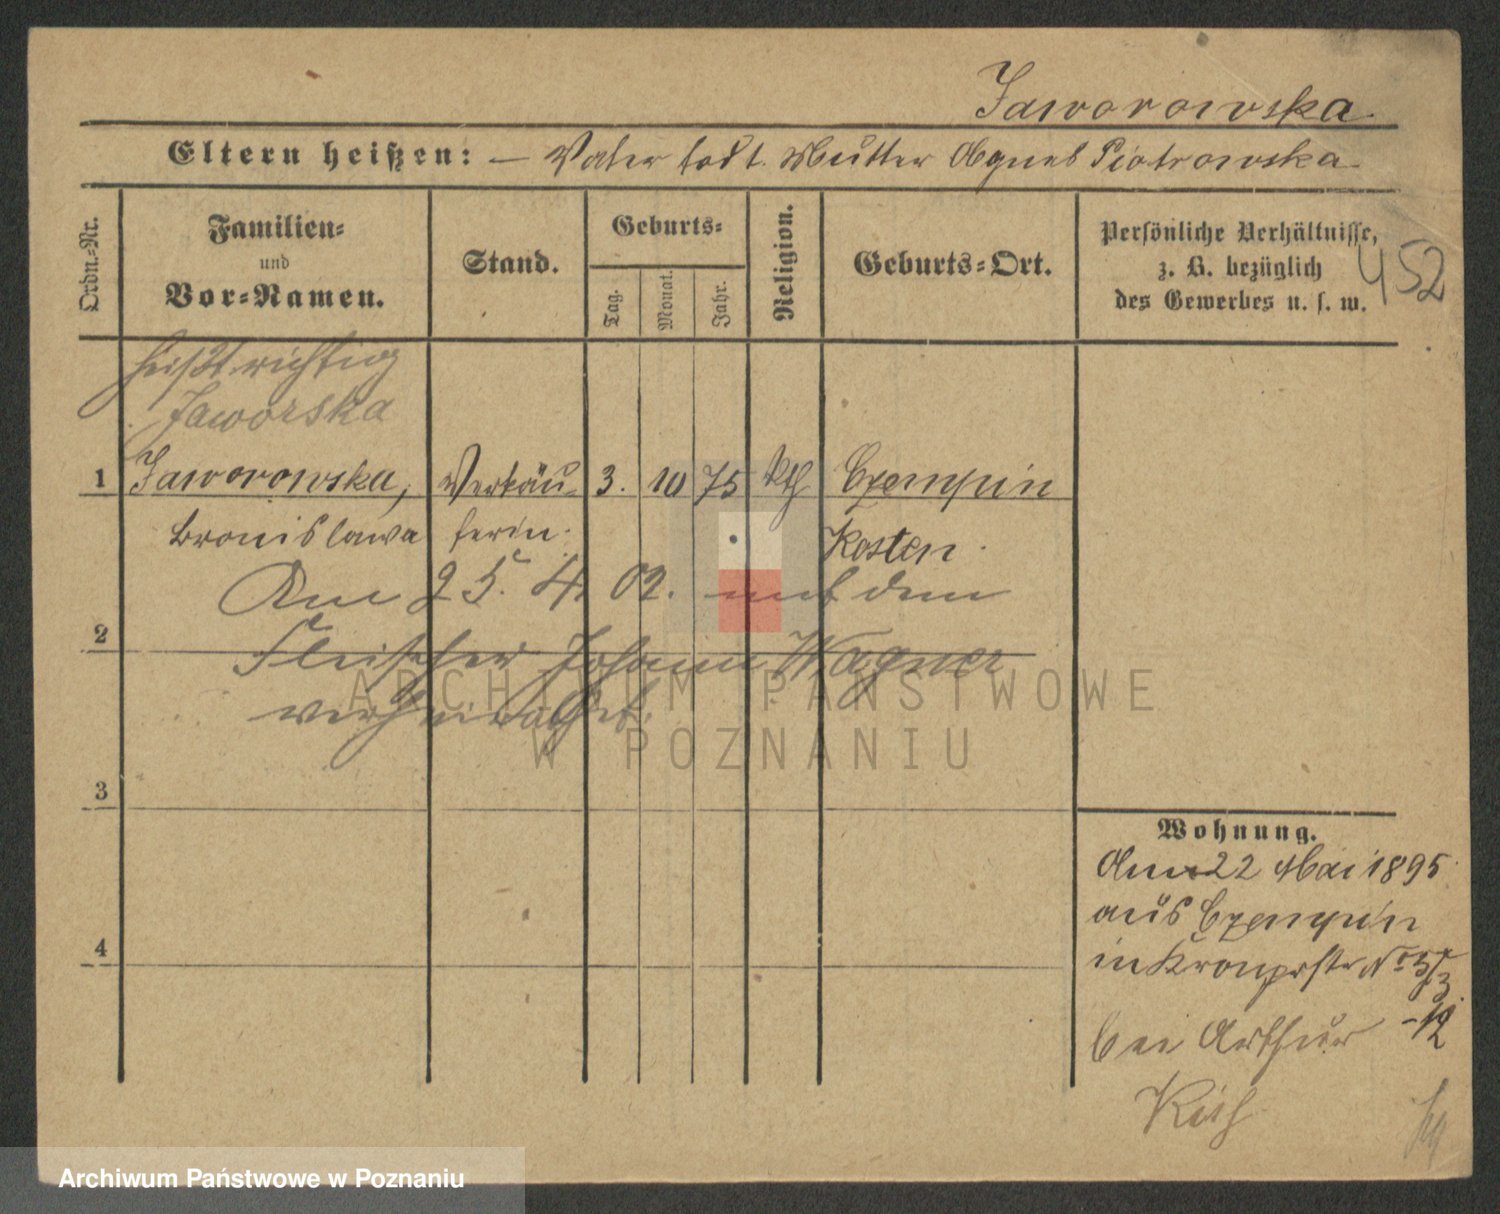 Jaworowska
Eltern heißen: — Vater todt. Mutter Agnes Piotrowska
Ordn.-Nr.
Familien-
und
Vor-Namen.
Stand.
Geburts-
Tag.
Monat.
Jahr.
Religion.
Geburts-Ort.
Persönliche Verhältnisse,
z. B. bezüglich
des Gewerbes u. s. w.
452
heißt richtig
Jaworska
1 Jaworowska, Verkäu- 3. 10 75 kth Czempin
Bronislawa ferin. Kosten
Am 25. 4. 02. mit dem
2 Fleischer Johann Wagner
verheirathet.
3
4
Wohnung.
Am 22 Mai 1895
aus Czempin
in Kronprstr No
bei Arthur
ARCHIWUM PAŃSTWOWE
W POZNANIU
Archiwum Państwowe w Poznaniu